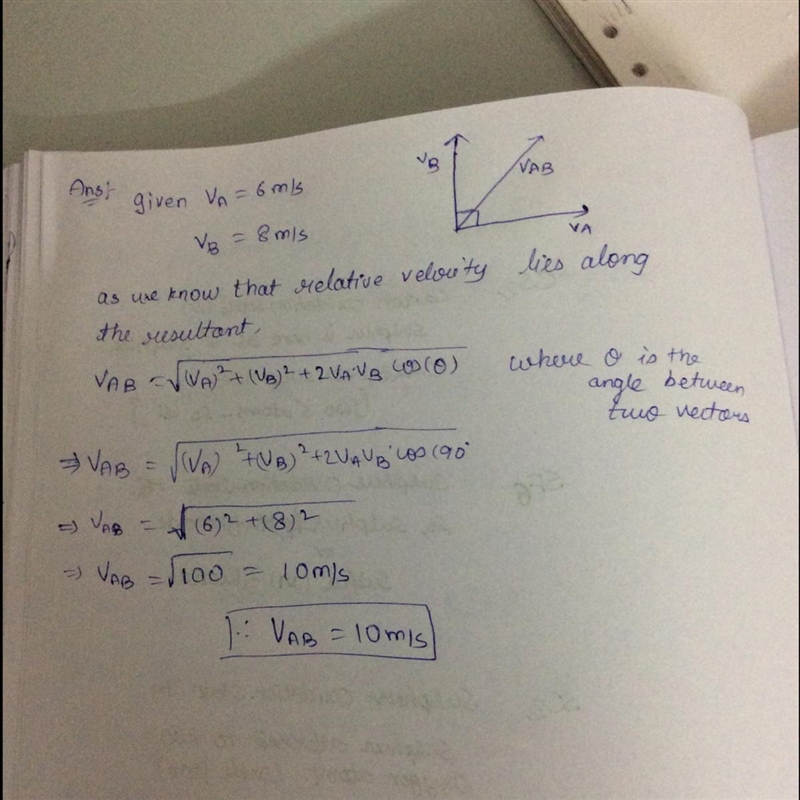 Ans:
given VA = 6 m/s
VB = 8 m/s
VB
VAB
VA
as we know that relative velocity lies along
the resultant,
VAB = √(VA)²+(VB)²+2VA·VB cos(θ)
where θ is the
angle between
two vectors
⇒ VAB = √(VA)²+(VB)²+2VAVB·cos(90°
⇒ VAB = √(6)²+(8)²
⇒ VAB = √100 = 10m/s
∵ VAB = 10m/s
SF6